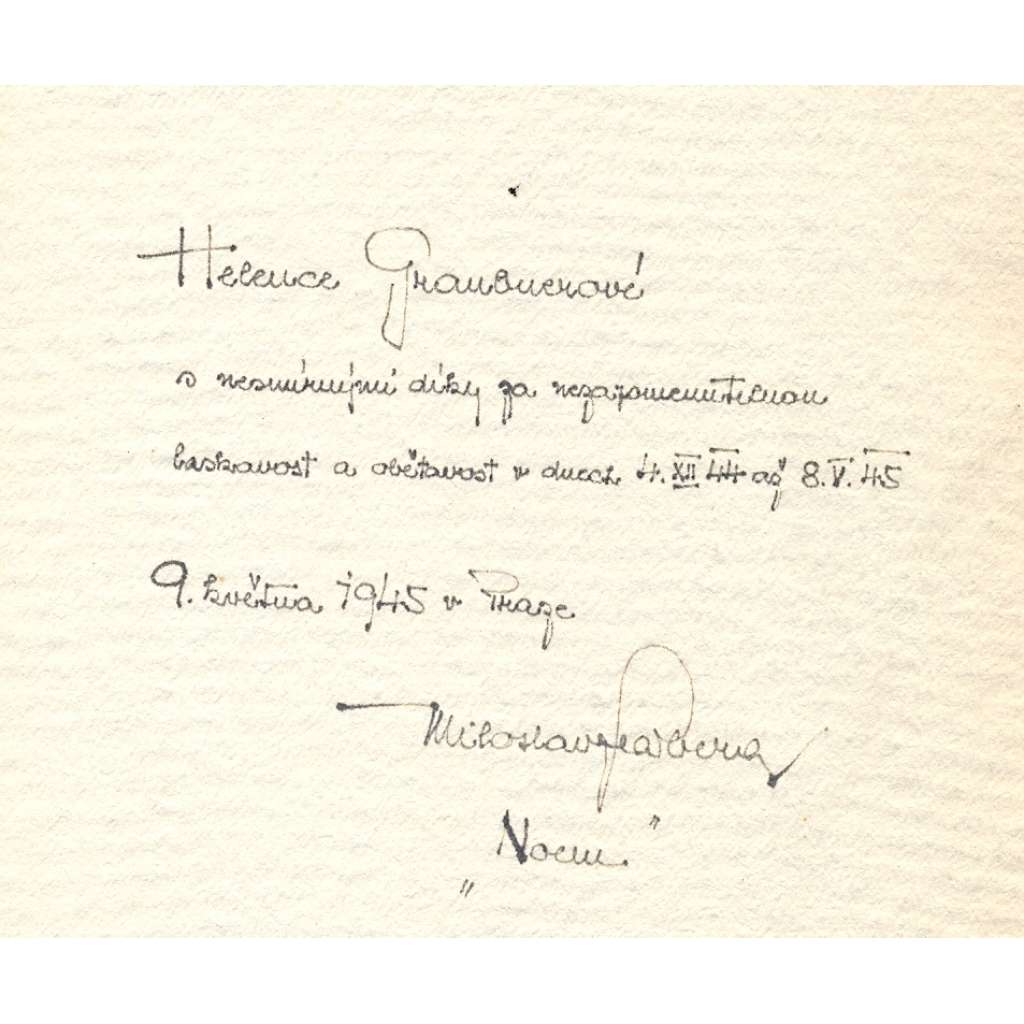 Helence Graubnerové
s nesmírnými díky za nezapomenutelnou
laskavost a obětavost v dnech 4. XII 44 až 8. V. 45
9. května 1945 v Praze
Miloslav
"Noemi"